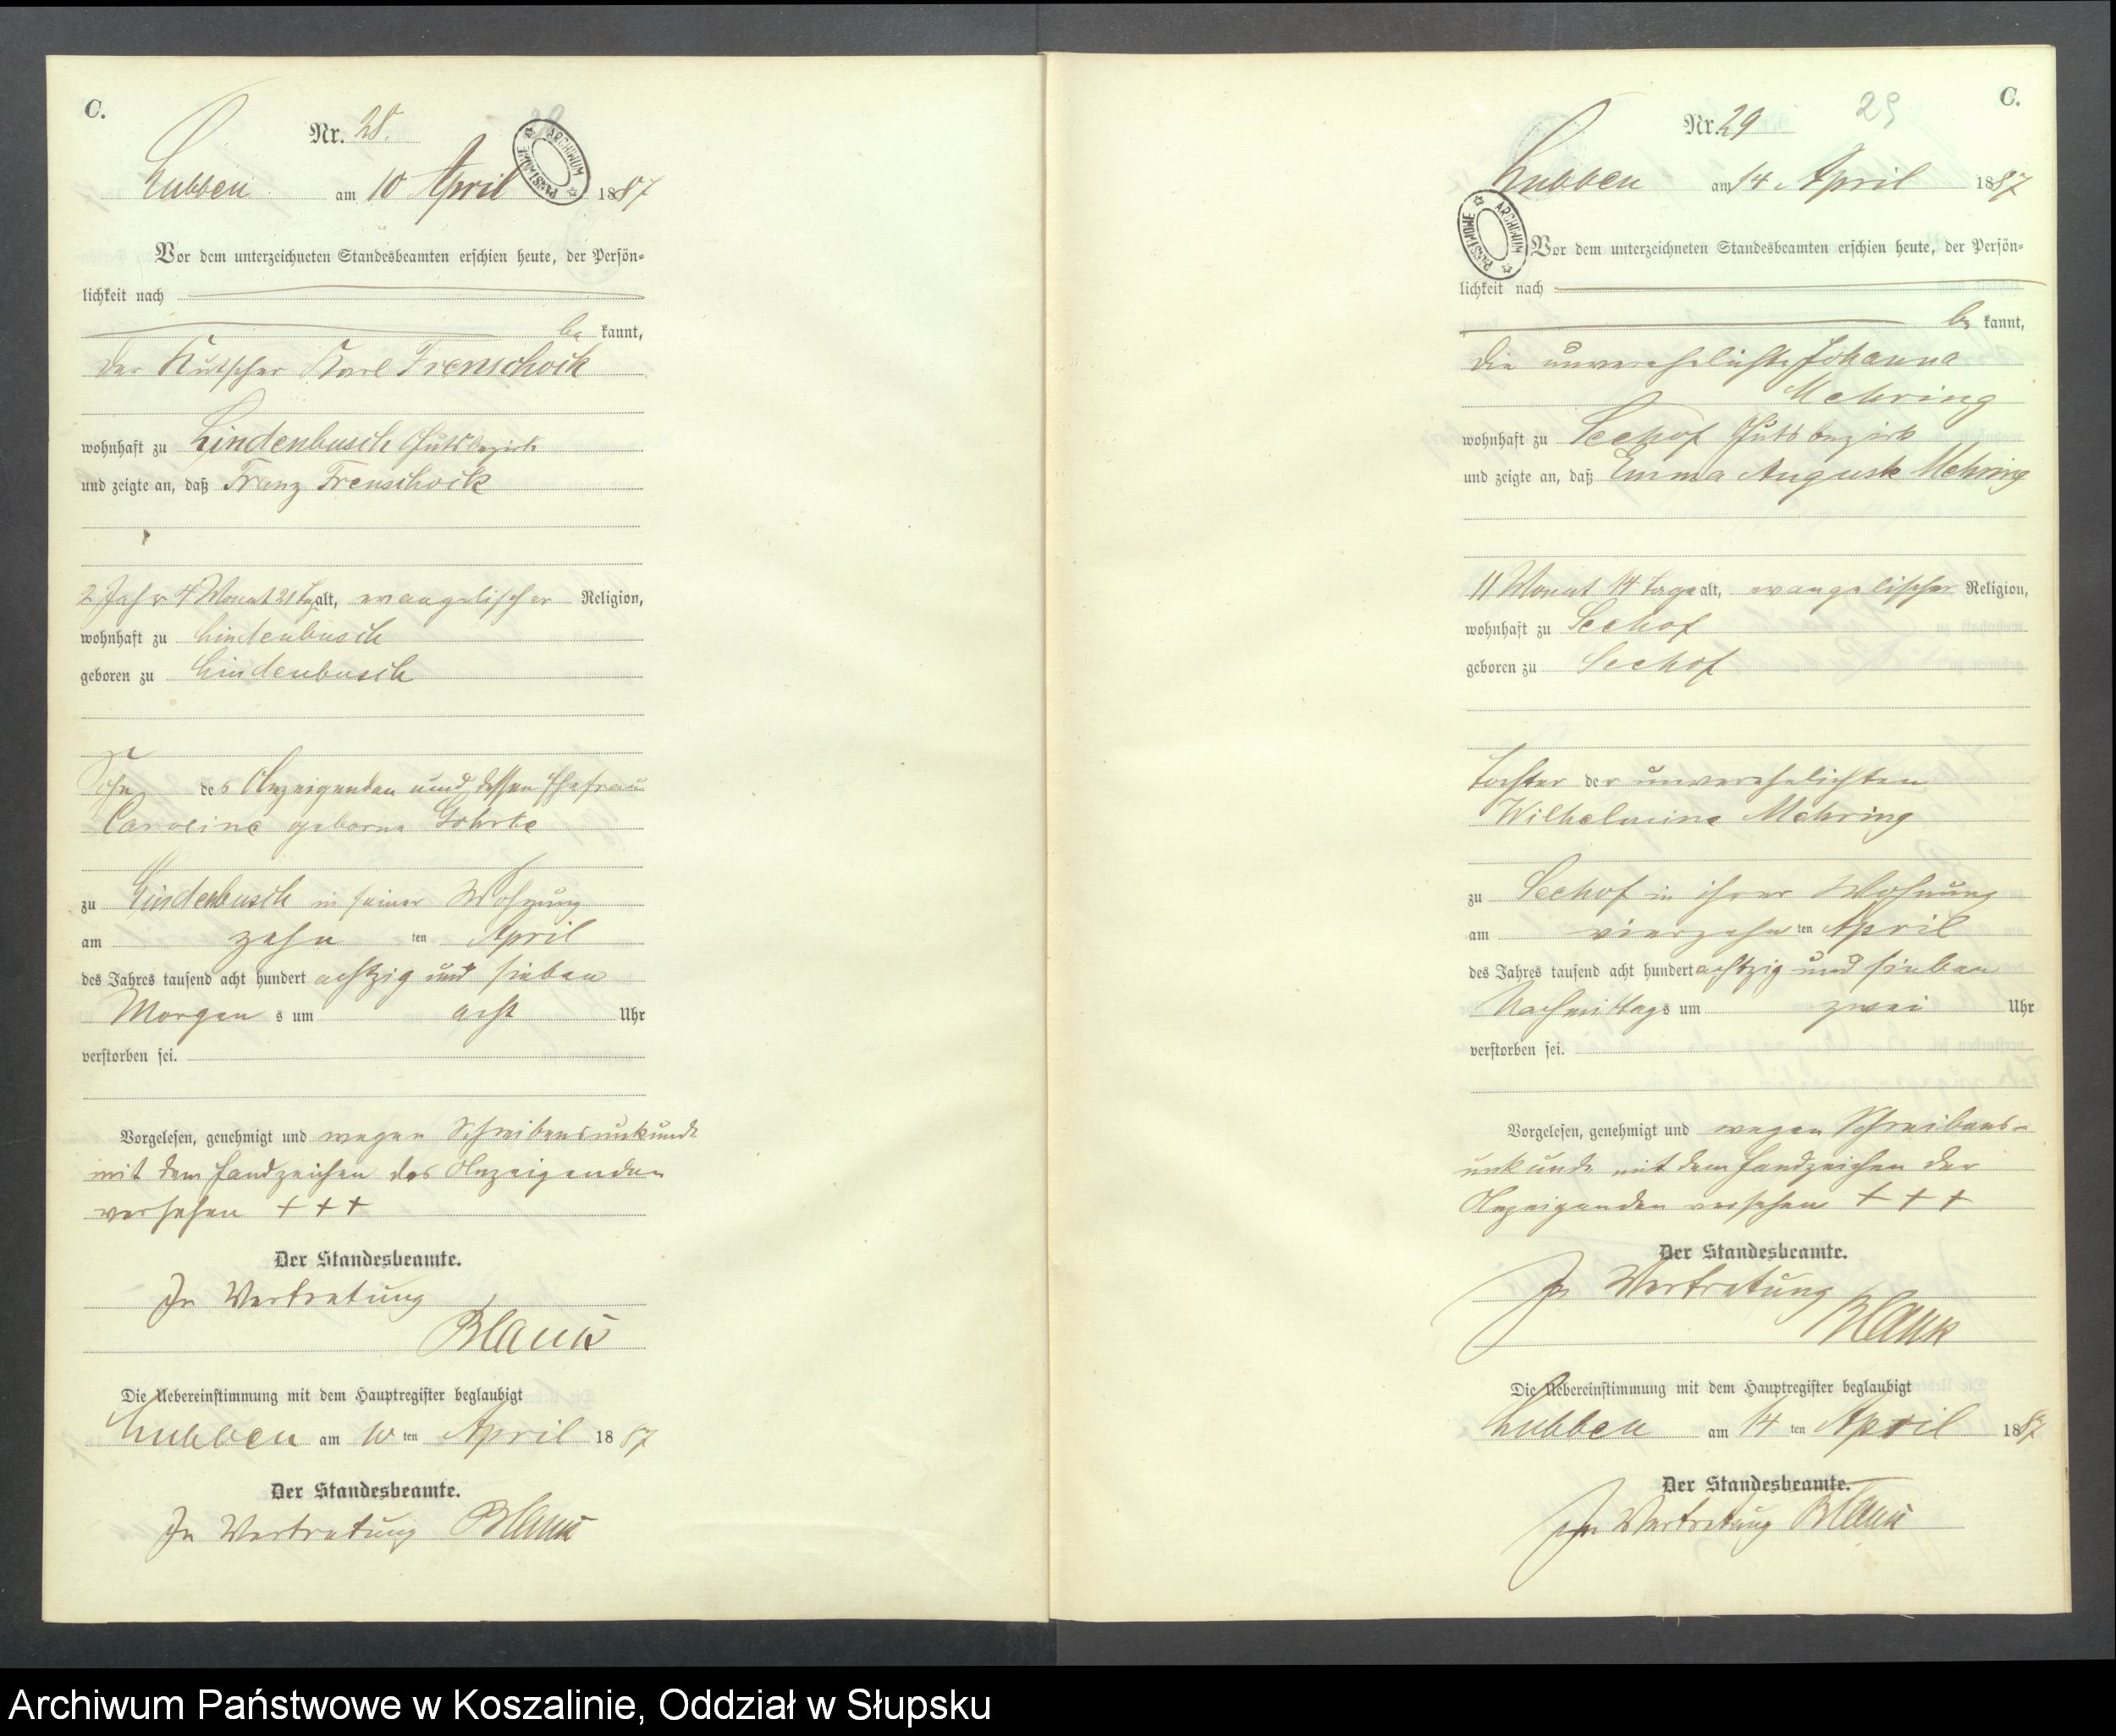 C.
Nr. 28.
Lubben am 10 April 1887
ARCHIWUM PAŃSTWOWE
Vor dem unterzeichneten Standesbeamten erschien heute, der Persön-
lichkeit nach
be kannt,
der Kutscher Karl Frenschock
wohnhaft zu Lindenbusch Gutsbezirk
und zeigte an, daß Franz Frenschock
2 Jahr 4 Monat 21 Tg alt, evangelischer Religion,
wohnhaft zu Lindenbusch
geboren zu Lindenbusch
Sohn des Anzeigenden und dessen Ehefrau
Caroline geborne Gohrke
zu Lindenbusch in seiner Wohnung
am zehn ten April
des Jahres tausend acht hundert achtzig und sieben
Morgen s um acht Uhr
verstorben sei.
Vorgelesen, genehmigt und wegen Schreibensunkunde
mit dem Handzeichen des Anzeigenden
versehen + + +
Der Standesbeamte.
In Vertretung
Blank
Die Uebereinstimmung mit dem Hauptregister beglaubigt
Lubben am 10 ten April 1887
Der Standesbeamte.
In Vertretung Blank
C.
29
Nr. 29
Lubben am 14 April 1887
ARCHIWUM PAŃSTWOWE
Vor dem unterzeichneten Standesbeamten erschien heute, der Persön-
lichkeit nach
be kannt,
die unverehelichte Johanna
Mehring
wohnhaft zu Seehof Gutsbezirk
und zeigte an, daß Emma Auguste Mehring
11 Monat 14 Tage alt, evangelischer Religion,
wohnhaft zu Seehof
geboren zu Seehof
Tochter der unverehelichten
Wilhelmine Mehring
zu Seehof in ihrer Wohnung
am vierzehn ten April
des Jahres tausend acht hundert achtzig und sieben
Nachmittags um zwei Uhr
verstorben sei.
Vorgelesen, genehmigt und wegen Schreibens-
unkunde mit dem Handzeichen der
Anzeigenden versehen + + +
Der Standesbeamte.
In Vertretung
Blank
Die Uebereinstimmung mit dem Hauptregister beglaubigt
Lubben am 14 ten April 1887
Der Standesbeamte.
In Vertretung Blank
Archiwum Państwowe w Koszalinie, Oddział w Słupsku